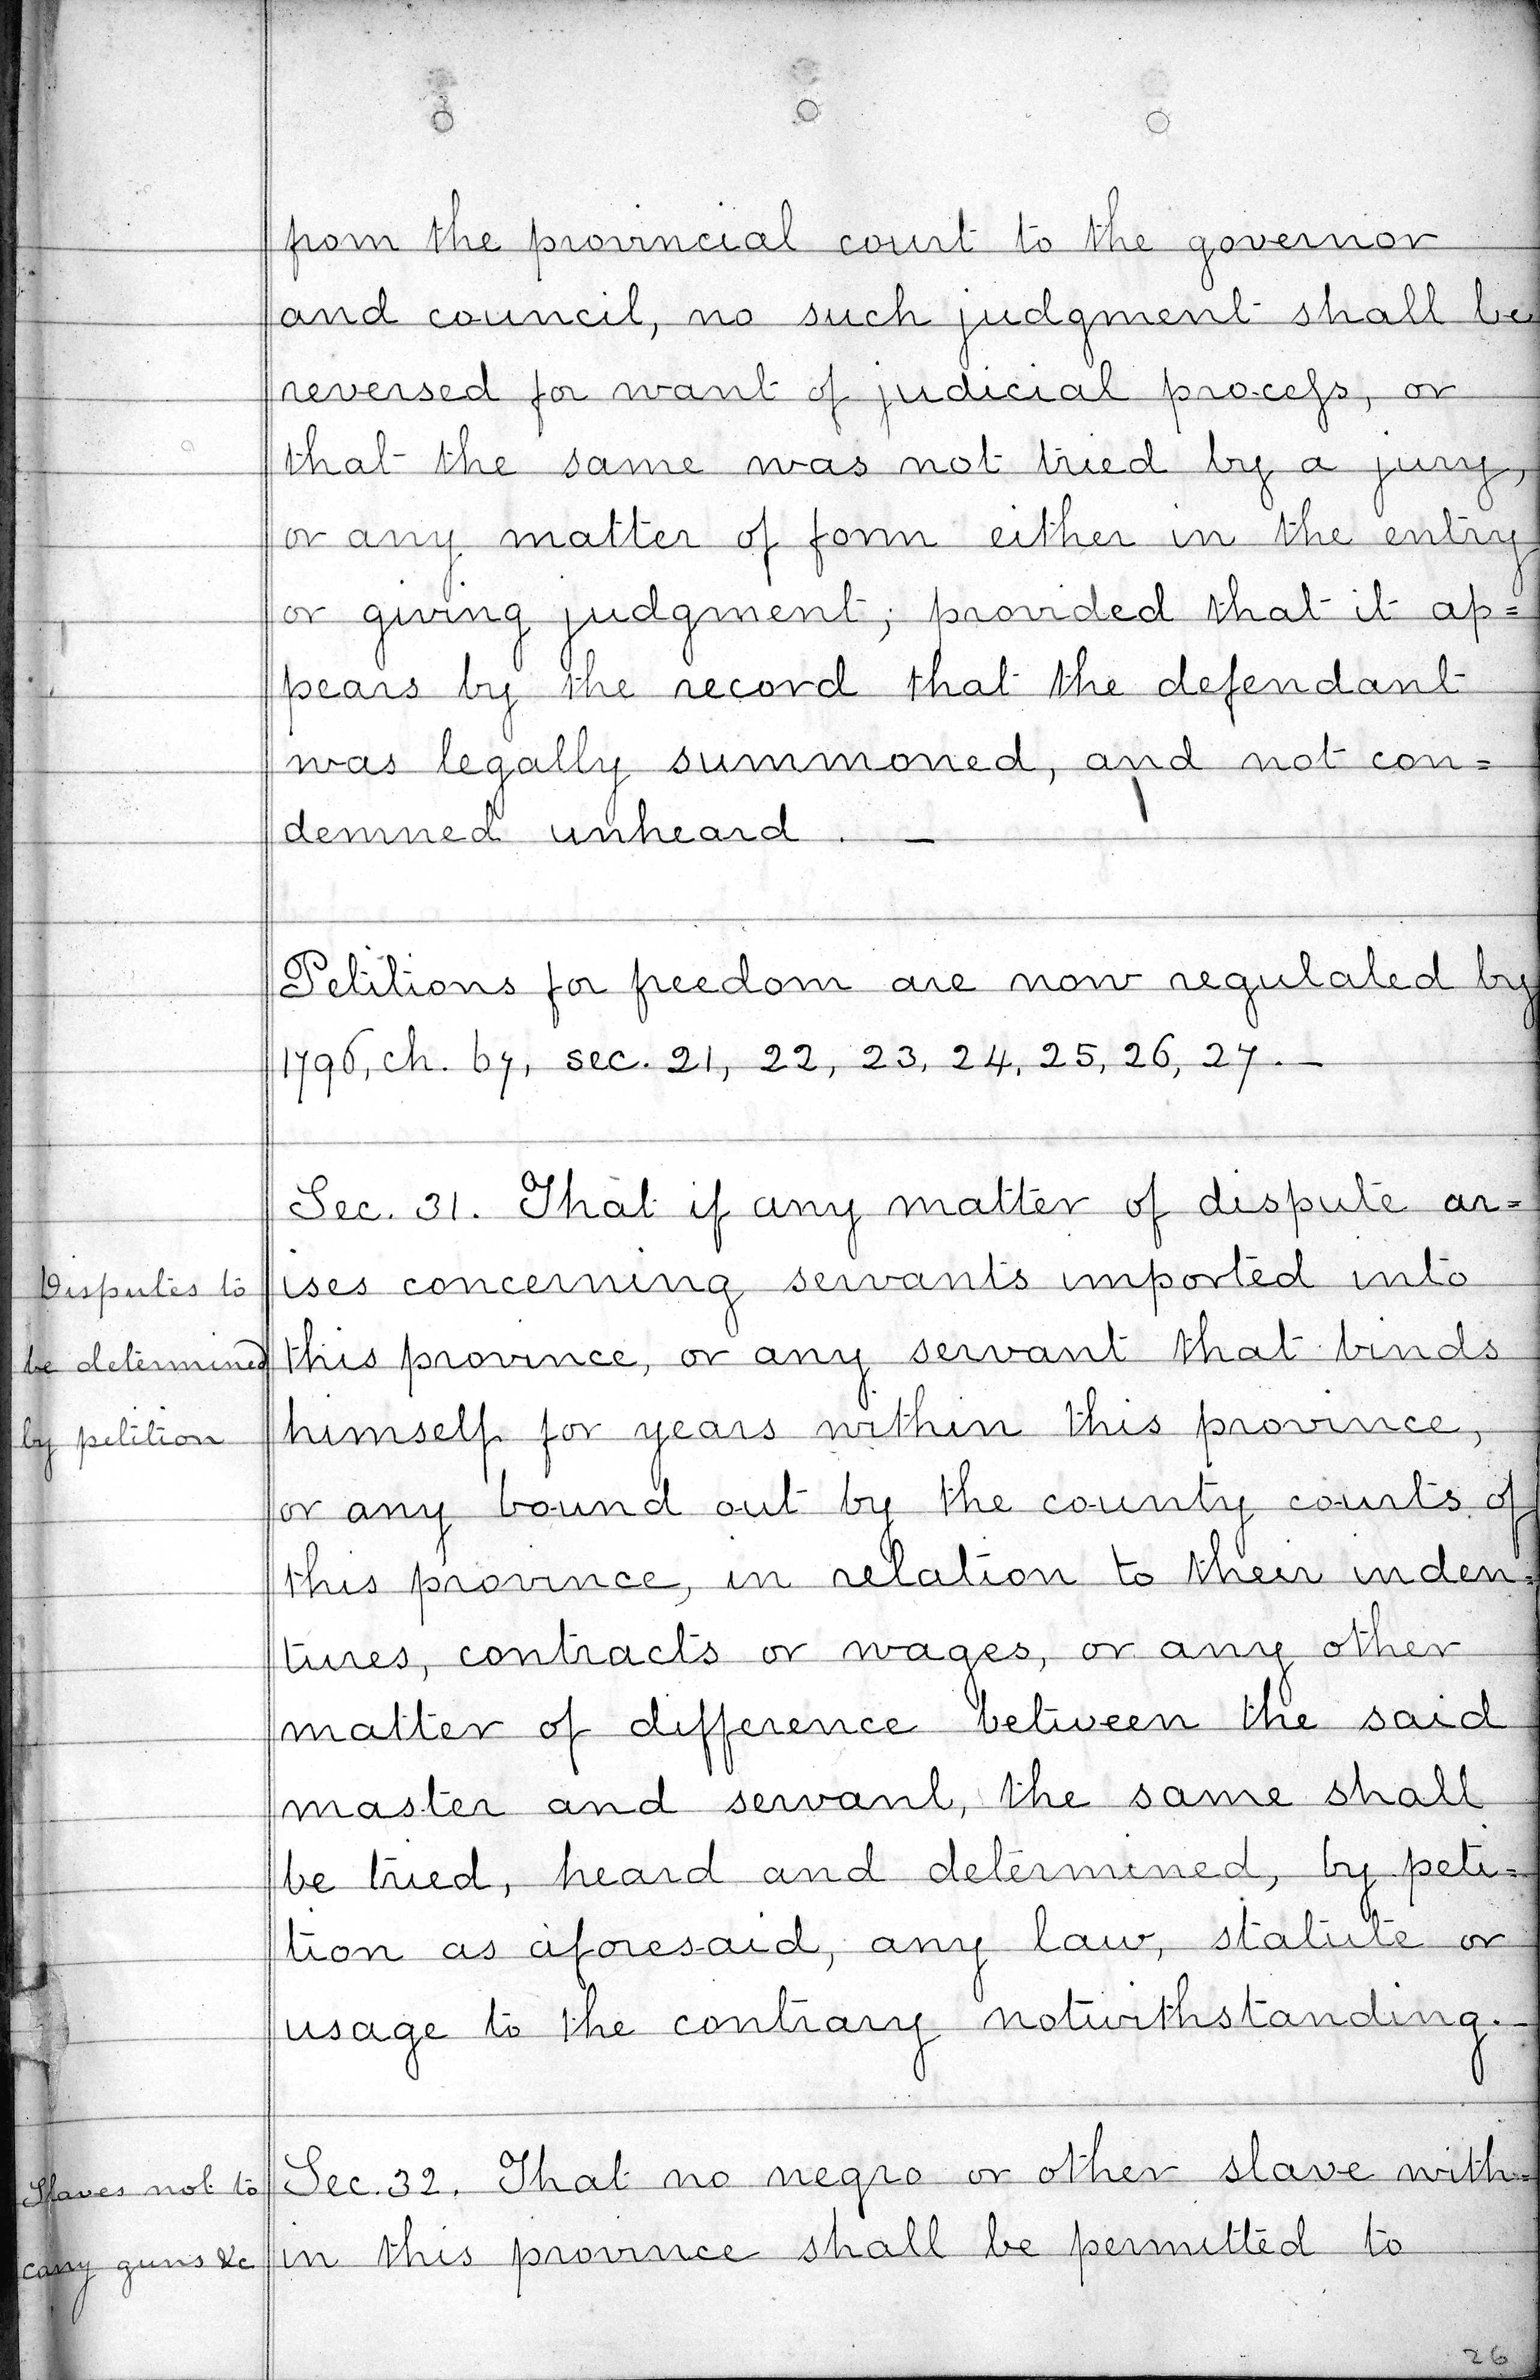 from the provincial court to the governor
and council, no such judgment shall be
reversed for want of judicial process, or
that the same was not tried by a jury,
or any matter of form either in the entry
or giving judgment; provided that it ap=
pears by the record that the defendant
was legally summoned, and not con=
demned unheard. —
Petitions for freedom are now regulated by
1796, ch. 67, sec. 21, 22, 23, 24, 25, 26, 27. —
Sec. 31. That if any matter of dispute ar=
Disputes to
be determined
by petition
ises concerning servants imported into
this province, or any servant that binds
himself for years within this province,
or any bound out by the county courts of
this province, in relation to their inden=
tures, contracts or wages, or any other
matter of difference between the said
master and servant, the same shall
be tried, heard and determined, by peti=
tion as aforesaid, any law, statute or
usage to the contrary notwithstanding. —
Slaves not to
carry guns &c
Sec. 32. That no negro or other slave with=
in this province shall be permitted to
26